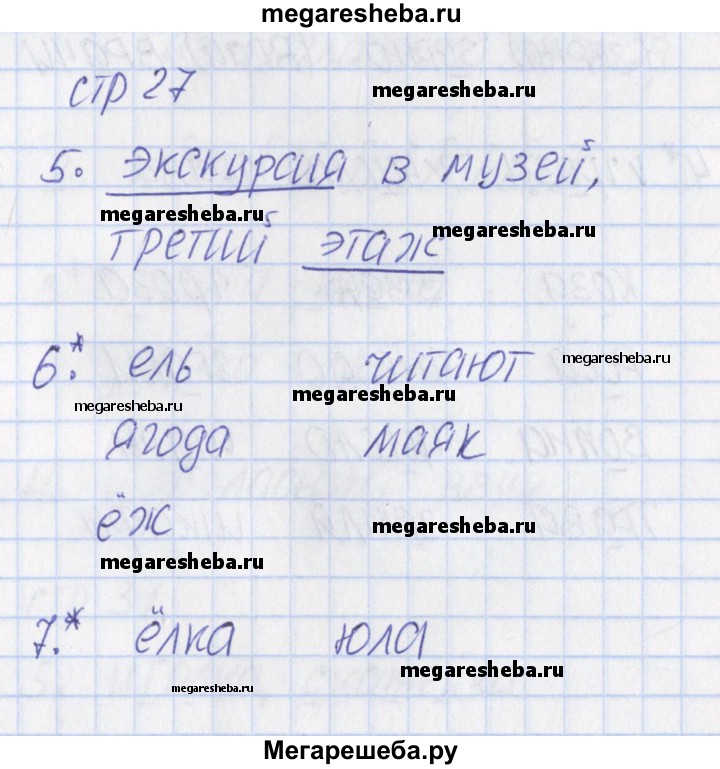 megaresheba.ru
стр 27
megaresheba.ru
5. экскурсия в музей,
megaresheba.ru
третий этаж
megaresheba.ru
6.* ель читают
megaresheba.ru
megaresheba.ru
megaresheba.ru
ягода маяк
ёж
megaresheba.ru
megaresheba.ru
7.* ёлка юла
megaresheba.ru
megaresheba.ru
Мегарешеба.ру